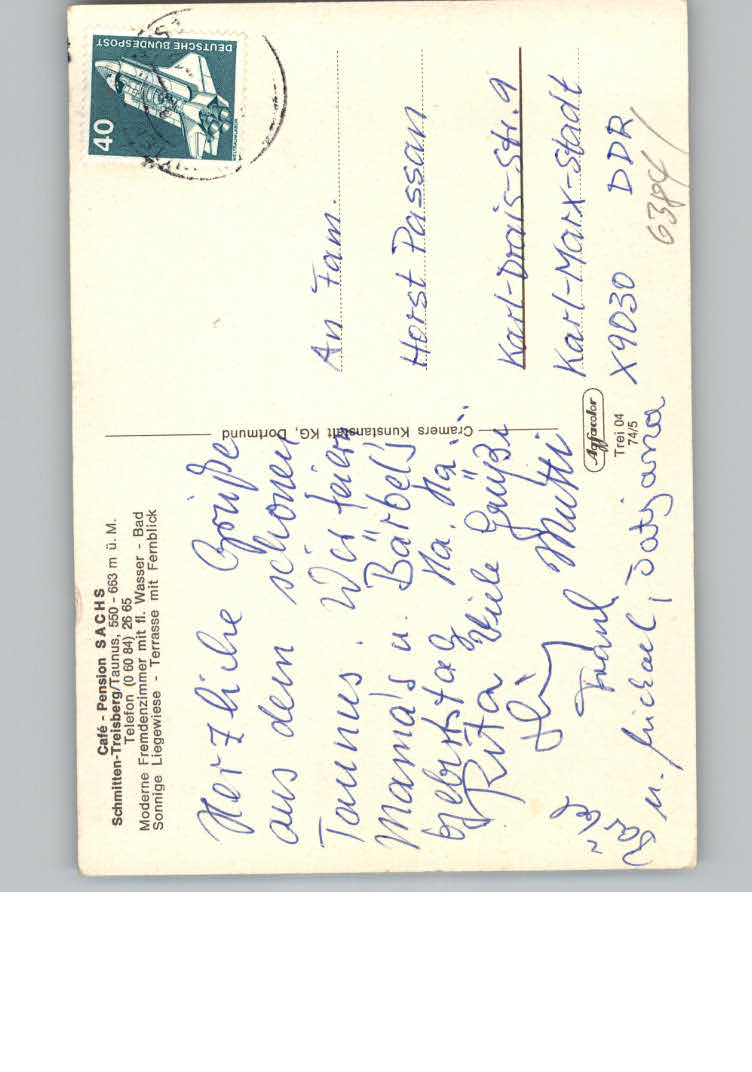 Café - Pension SACHS
Schmitten-Treisberg/Taunus, 550 - 663 m ü. M.
Telefon (0 60 84) 26 65
Moderne Fremdenzimmer mit fl. Wasser - Bad
Sonnige Liegewiese - Terrasse mit Fernblick
Herzliche Grüße
aus dem schönen
Taunus. Wir feiern
Mama's u. Bärbel's
Geburtstag Ha, Ha...
Rita Viele Grüße
Mutti
Frank
u. Michael, Tatjana
Cramers Kunstanstalt KG, Dortmund
Agfacolor
Trei 04
74/5
DEUTSCHE BUNDESPOST
40
An Fam.
Horst Passan
Karl-Drais-Str. 9
Karl-Marx-Stadt
X9030 DDR
6384/